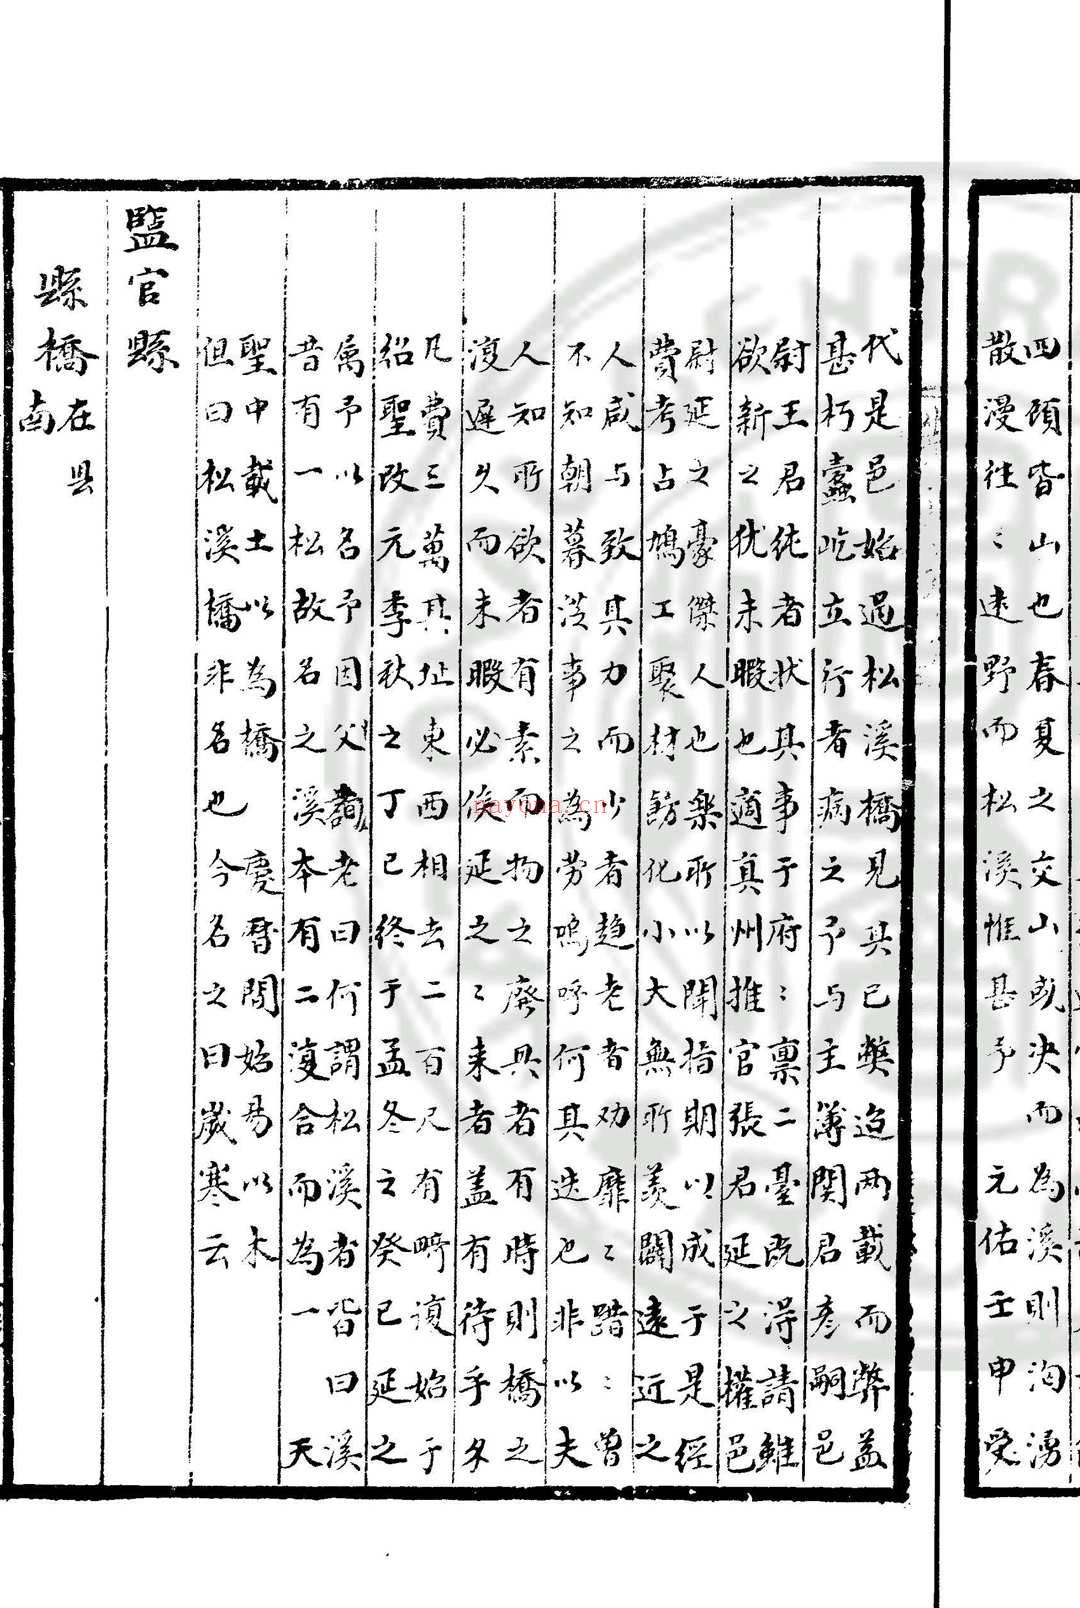 四顧皆山也春夏之交山既决而為溪則洶湧
散漫往〻逺野而松溪惟甚予 元佑壬申受
代是邑始過松溪橋見其已獘迨两載而弊益
甚朽蠧屹立行者病之予与主簿関君彦嗣邑
尉王君純者状其事于府〻禀二臺既得請雖
欲新之犹未暇也適真州推官張君延之權邑
尉延之豪傑人也樂所以聞指期以成于是経
費考占鳩工聚材飭化小大無所羡闢逺近之
人咸与致其力而少者趋老者劝靡〻踖〻曽
不知朝暮茂事之為劳嗚呼何其迭也非以夫
人知所欲者有素而物之廢具者有時則橋之
復遲久而未暇必俟延之〻来者盖有待乎夕
凡費三萬其址東西相去二百尺有畸復始于
绍聖改元季秋之丁已终于孟冬之癸已延之
属予以名予因父詢老曰何謂松溪者皆曰溪
昔有一松故名之溪本有二復合而為一天
聖中載土以為橋 慶暦間始易以木
但曰松溪橋非名也今名之曰嵗寒云
監官縣
縣橋在县
南
nayona.cn